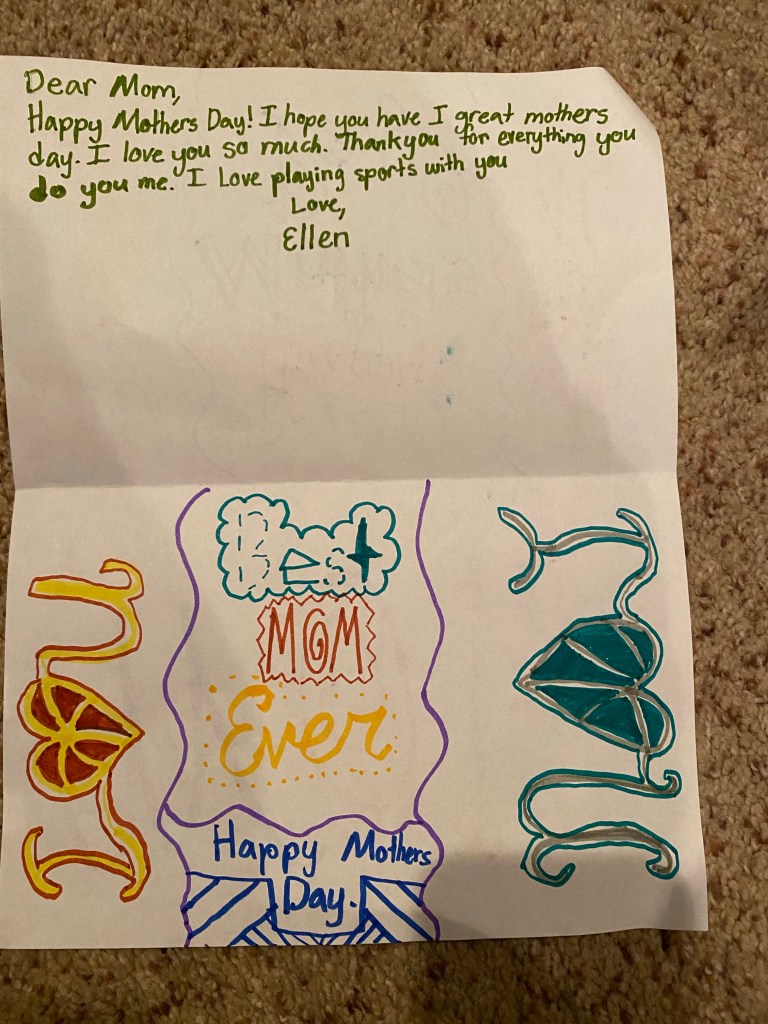 Dear Mom,
Happy Mothers Day! I hope you have I great mothers
day. I love you so much. Thankyou for everything you
do you me. I Love playing sports with you
Love,
Ellen
Best
MOM
Ever
Happy Mothers
Day.
I U
I U